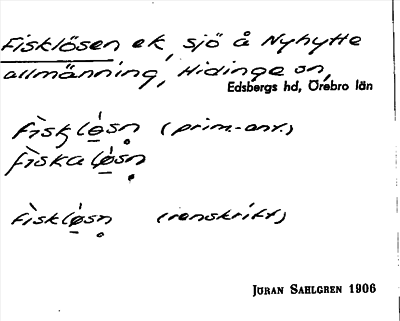 Fisklösen ek, sjö å Nyhytte
allmänning, Hidinge sn,
Edsbergs hd, Örebro län
fìskló̱sn̥ (prim.-ant.)
fìskaló̱sn̥
fìskló̱sn̥ (renskrift)
JÖRAN SAHLGREN 1906